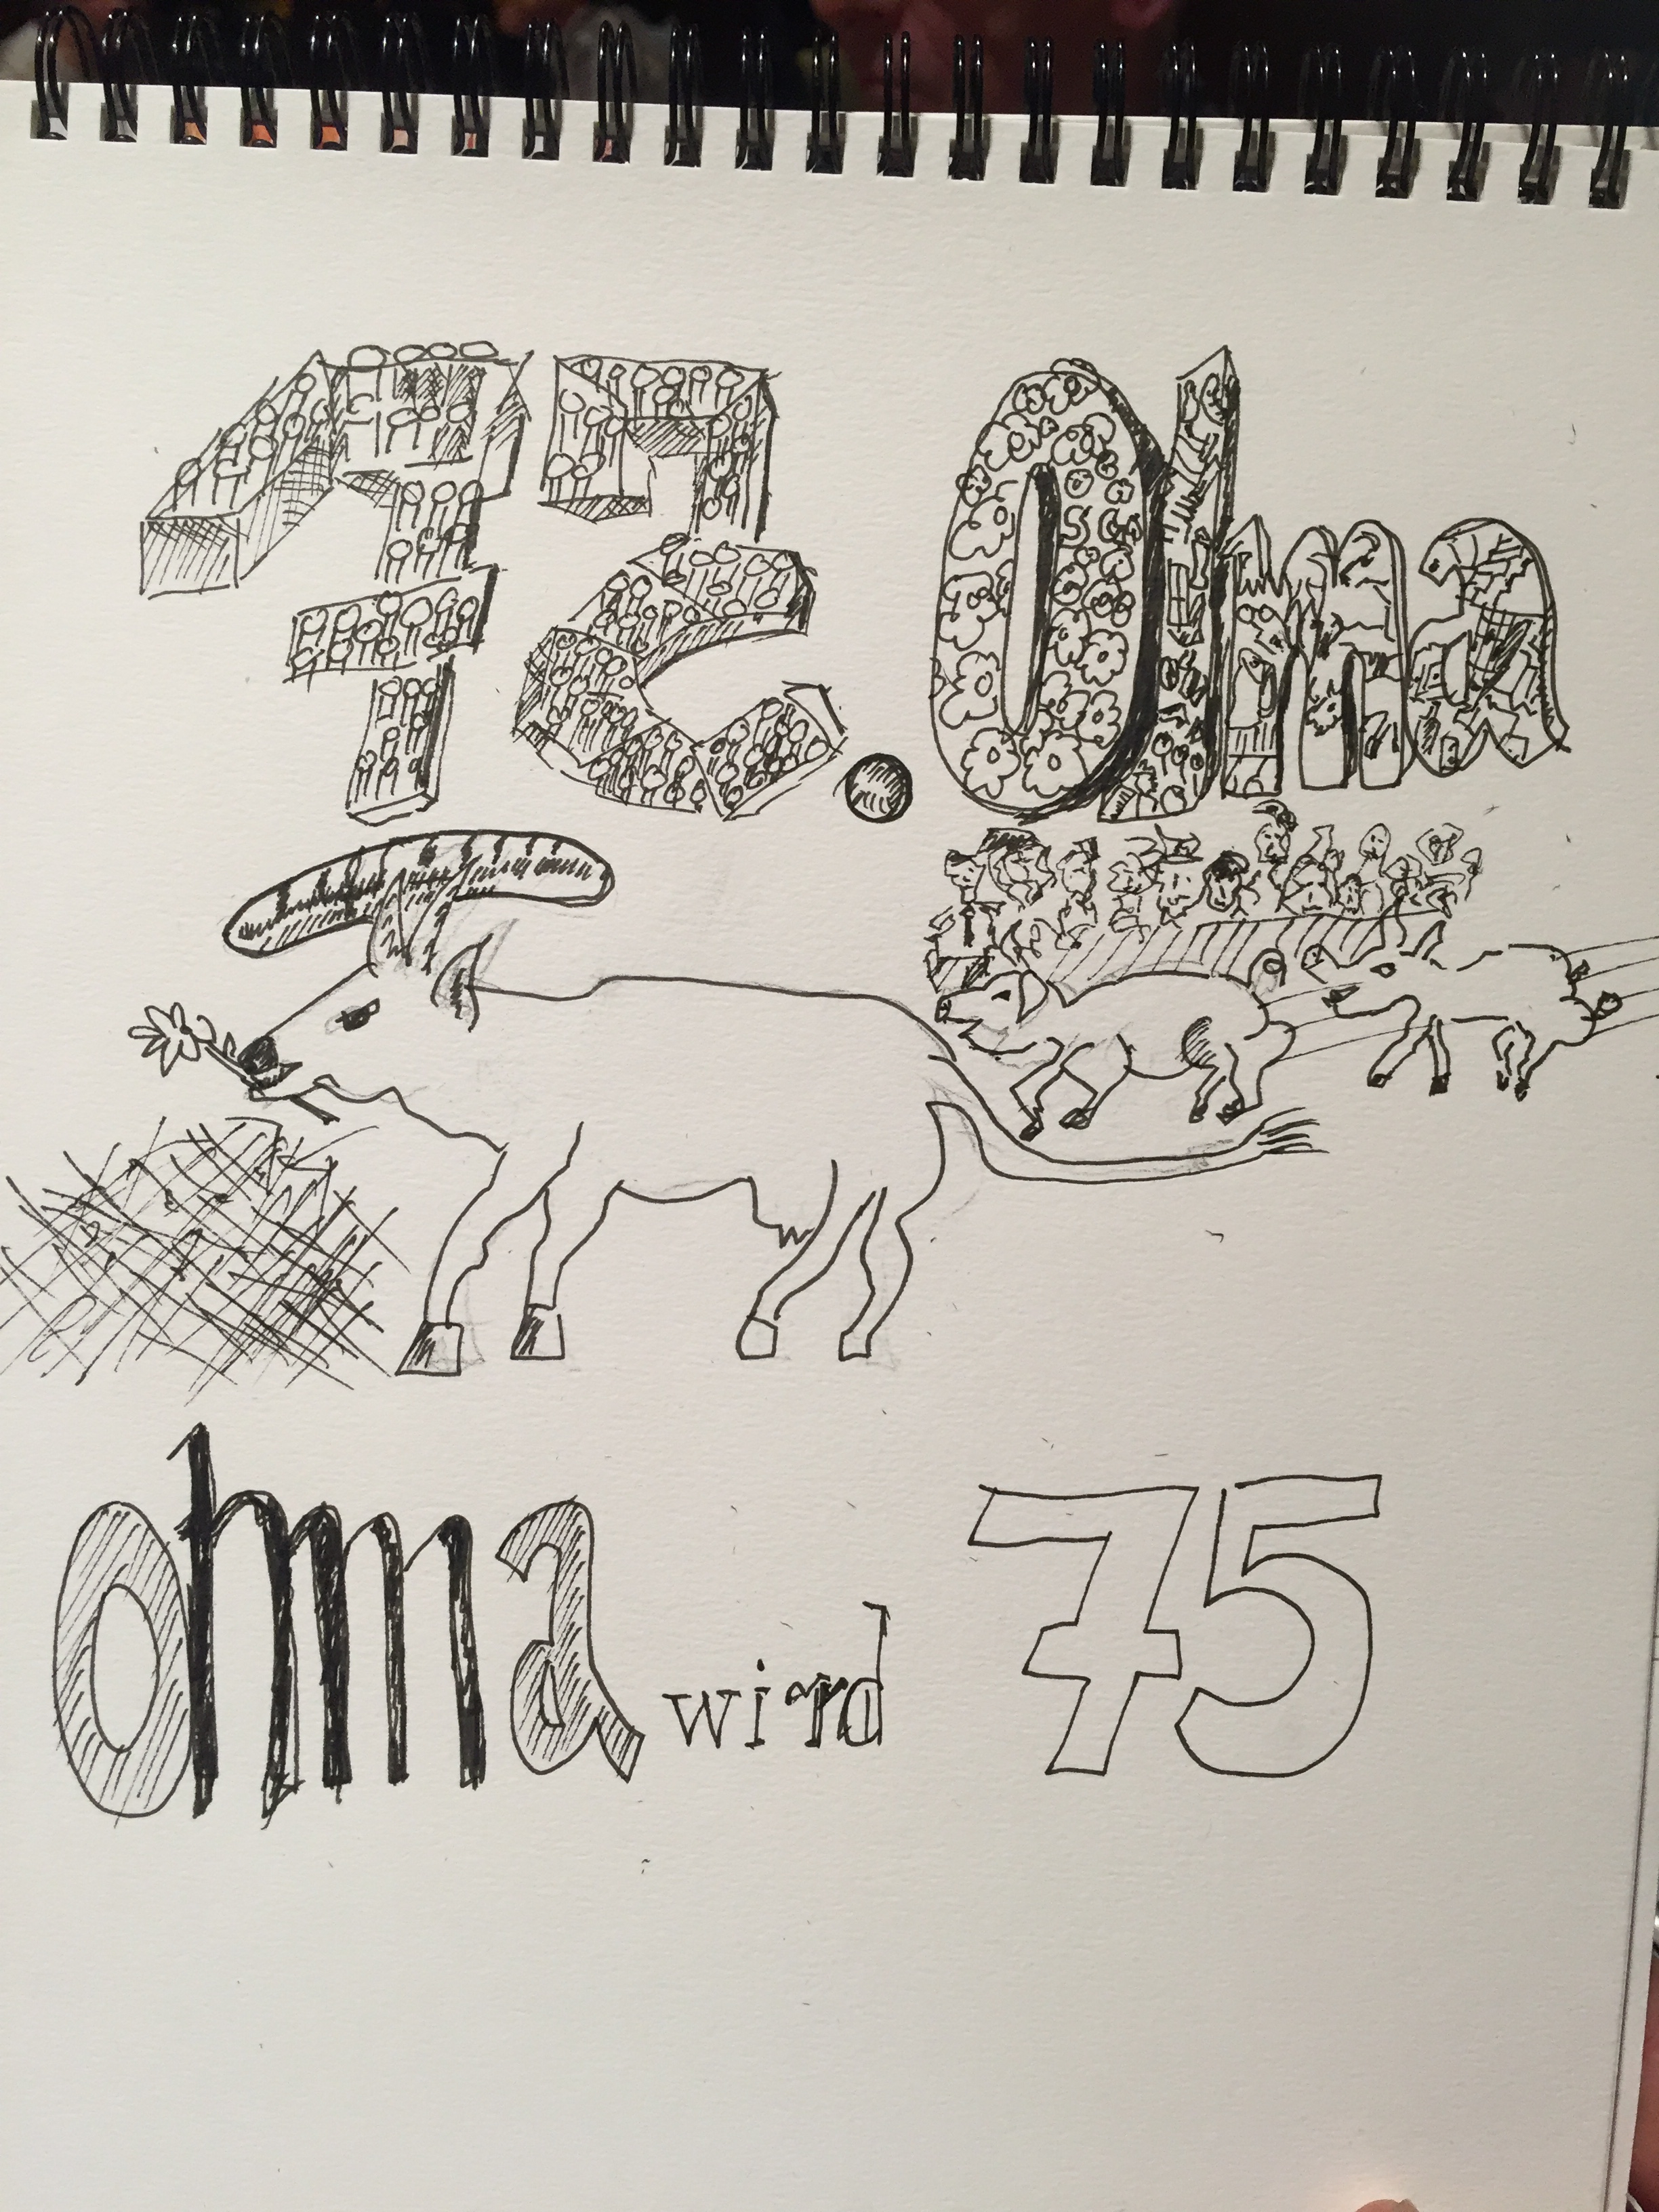 75. Olma
ohma wird 75